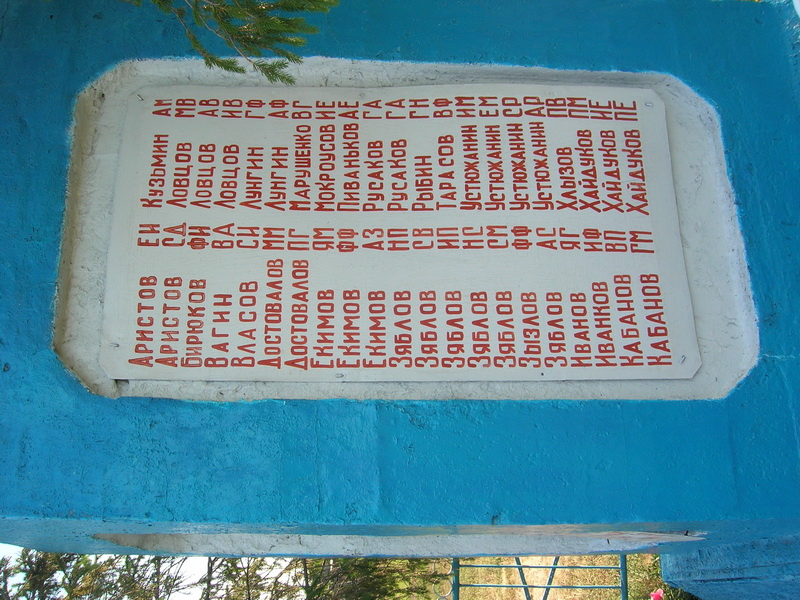 Аристов ЕИ Кузьмин АМ
Аристов СД Ловцов МВ
Бирюков ФИ Ловцов АВ
Вагин ВА Ловцов ИВ
Власов СИ Лунгин ГФ
Достовалов ММ Лунгин АФ
Достовалов ПГ Марушенко ВГ
Екимов ЯМ Мокроусов ИЕ
Екимов ФФ Пиваньков АЕ
Екимов АЗ Русаков ГА
Зяблов НП Русаков ГА
Зяблов СВ Рыбин ГН
Зяблов ИП Тарасов ВФ
Зяблов НС Устюжанин ИМ
Зяблов СМ Устюжанин ЕМ
Зызлов ФФ Устюжанин СР
Зяблов АС Устюжанин АР
Иванов ЯГ Хлызов ПВ
Иванков ИФ Хайдуков ПМ
Кабанов ВП Хайдуков НЕ
Кабанов ГМ Хайдуков ПЕ